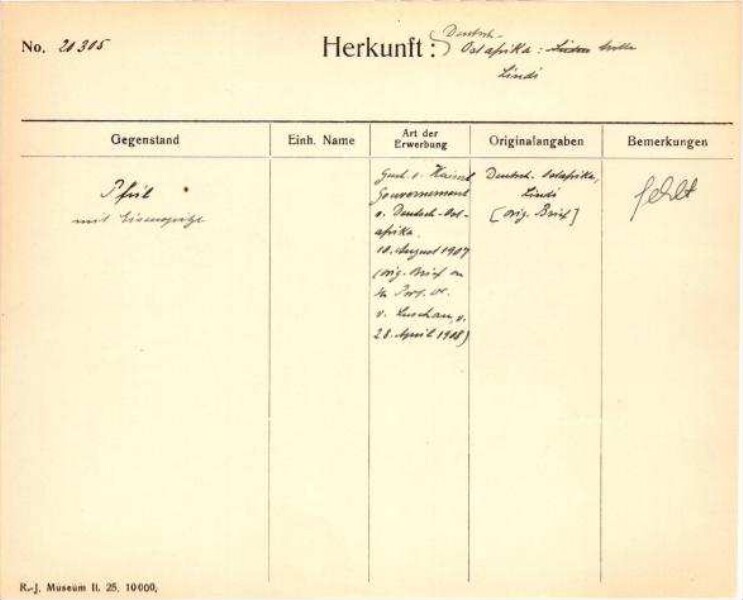 No. 20305
Herkunft: Deutsch-
Ostafrika:
Lindi
Gegenstand
Einh. Name
Art der
Erwerbung
Originalangaben
Bemerkungen
Pfeil
mit Eisenspitze
Gesch. v. Kaiserl
Gouvernement
v. Deutsch-Ost-
afrika.
10. August 1907
(orig. Brief an
v. Luschan, v.
28. April 1908)
Deutsch. Ostafrika,
Lindi
[orig. Brief]
fehlt
R.-J. Museum II. 25. 10000,